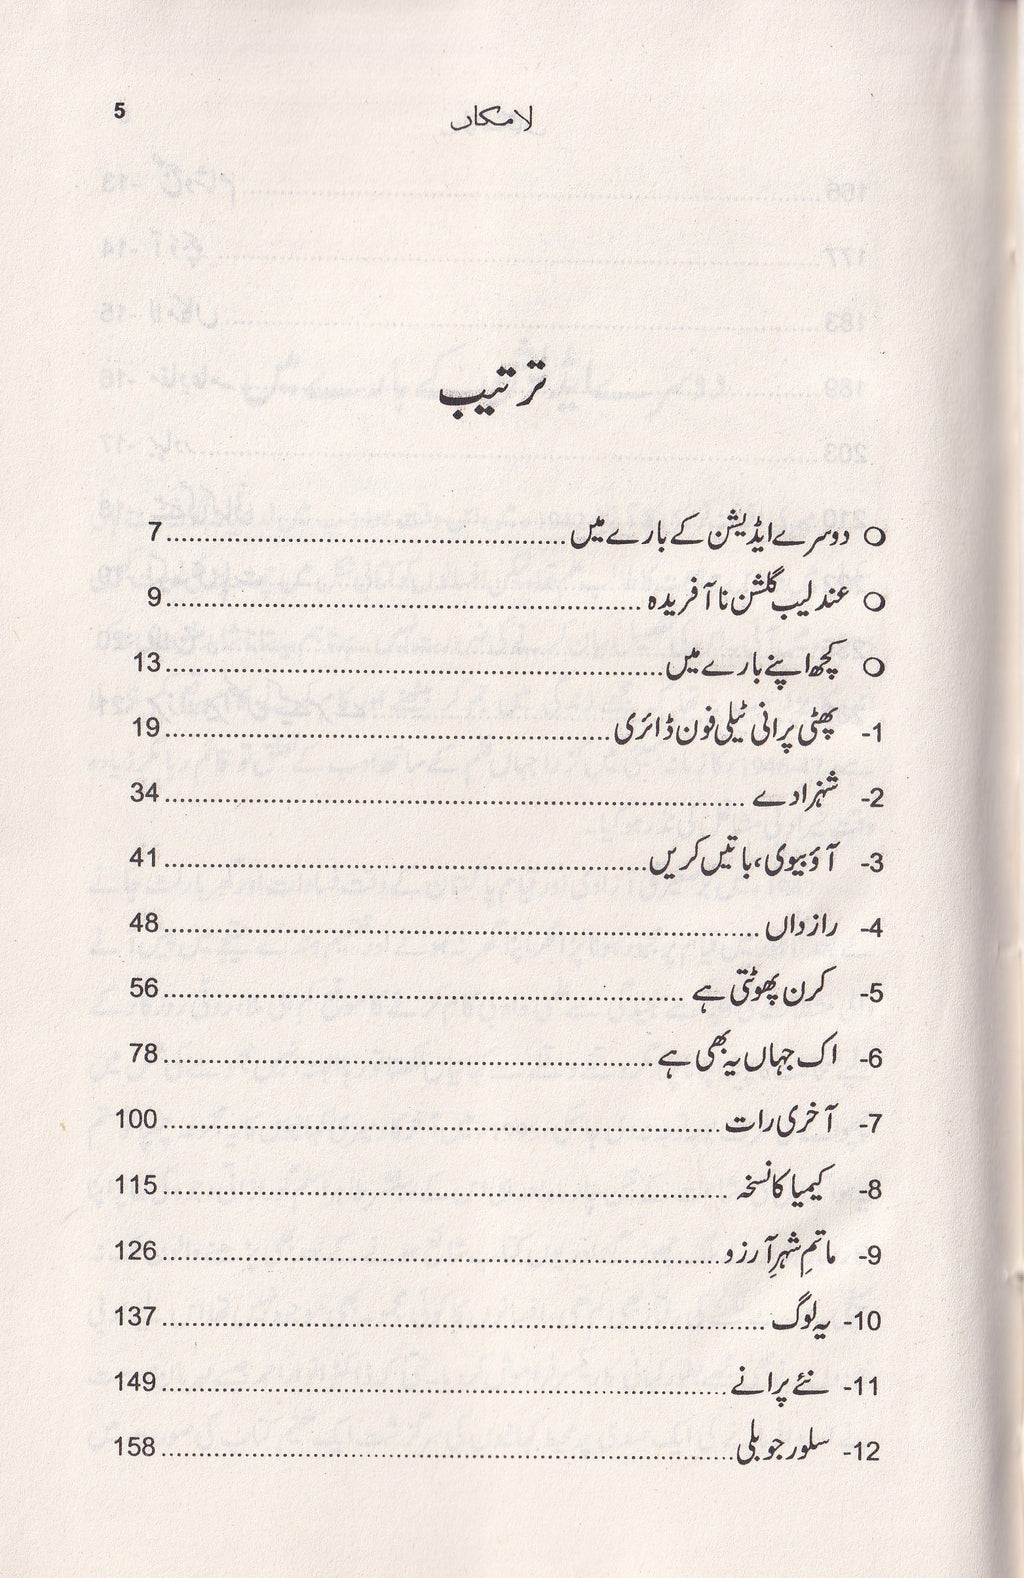 لامکاں 5
ترتیب
O دوسرے ایڈیشن کے بارے میں ........ 7
O عندلیب گلشن ناآفریدہ ........ 9
O کچھ اپنے بارے میں ........ 13
1- پھٹی پرانی ٹیلی فون ڈائری ........ 19
2- شہزادے ........ 34
3- آؤ بیوی، باتیں کریں ........ 41
4- رازداں ........ 48
5- کرن پھوٹتی ہے ........ 56
6- اک جہاں یہ بھی ہے ........ 78
7- آخری رات ........ 100
8- کیمیا کا نسخہ ........ 115
9- ماتمِ شہرِ آرزو ........ 126
10- یہ لوگ ........ 137
11- نئے پرانے ........ 149
12- سلور جوبلی ........ 158